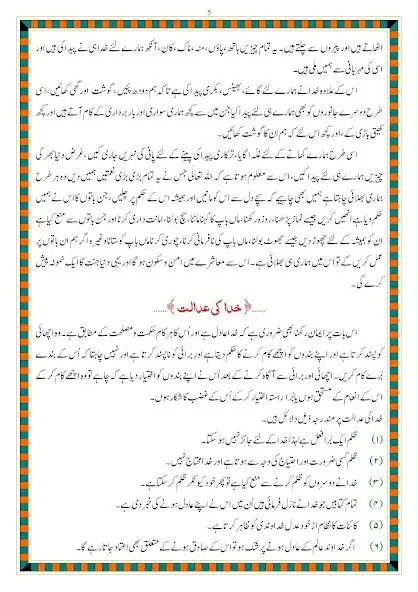 5
اٹھاتے ہیں اور پیروں سے چلتے ہیں۔ یہ تمام چیزیں ہاتھ، پاؤں، منہ، ناک، کان، آنکھ ہمارے لئے خدا ہی نے پیدا کی ہیں اور
اسی کی مہربانی سے ہمیں ملی ہیں۔
اس کے علاوہ خدا نے ہمارے لئے گائے، بھینس، بکری پیدا کی ہے تاکہ ہم دودھ پئیں، گوشت اور گھی کھائیں، اسی
طرح دوسرے جانوروں کو بھی ہمارے ہی لئے پیدا کیا جن میں سے کچھ ہماری سواری اور باربرداری کے کام آتے ہیں اور کچھ
کھیتی باڑی کے، اور کچھ اس لئے کہ ہم ان کا گوشت کھائیں۔
اسی طرح ہمارے کھانے کے لئے غلہ اگایا، ترکاری پیدا کی پینے کے لئے پانی کی نہریں جاری کیں، غرض دنیا بھر کی
چیزیں ہمارے ہی لئے پیدا کیں، اس سے معلوم ہوتا ہے کہ اللہ تعالی جس نے یہ تمام بڑی بڑی نعمتیں ہمیں دیں وہ ہر طرح
ہماری بھلائی چاہتا ہے ہمیں بھی چاہیے کہ سچے دل سے اس کو مانیں اور ہمیشہ اس کے حکم پر چلیں، جن باتوں کا اس نے ہمیں
حکم دیا ہے انھیں کریں جیسے نماز پڑھنا، روزہ رکھنا، ماں باپ کا کہنا ماننا، سچ بولنا، امانت داری کرنا اور جن باتوں سے منع کیا ہے
ان کو ہمیشہ کے لئے چھوڑ دیں جیسے جھوٹ بولنا، ماں باپ کی نافرمانی کرنا، چوری کرنا ماں باپ کو ستانا وغیرہ اگر ہم ان باتوں پر
عمل کریں گے تو اس میں ہماری ہی بھلائی ہے۔ اس سے معاشرے میں امن و سکون ہوگا اور یہی دنیا جنت کا ایک نمونہ پیش
کرے گی۔
......﴿خدا کی عدالت﴾......
اس بات پر ایمان رکھنا بھی ضروری ہے کہ خدا عادل ہے اور اُس کا ہر کام حکمت و مصلحت کے مطابق ہے۔ وہ اچھائی
کو پسند کرتا ہے اور اپنے بندوں کو اچھے کام کرنے کا حکم دیتا ہے اور برائی کو ناپسند کرتا ہے اور نہیں چاہتا کہ اُس کے بندے
بُرے کام کریں۔ اچھائی اور برائی سے آگاہ کرنے کے بعد اُس نے اپنے بندوں کو اختیار دیا ہے کہ چاہے تو وہ اچھے کام کر کے
اس کے انعام کے مستحق ہوں یا بُرا راستہ اختیار کر کے اُس کے غضب کا شکار ہوں۔
خدا کی عدالت پر مندرجہ ذیل دلائل ہیں۔
(۱) ظلم ایک بُرا فعل ہے لہٰذا خدا کے لئے جائز نہیں ہو سکتا۔
(۲) ظلم کسی ضرورت اور احتیاج کی وجہ سے ہوتا ہے اور خدا محتاج نہیں۔
(۳) خدا نے دوسروں کو ظلم کرنے سے منع کیا ہے تو پھر خود کیونکر ظلم کر سکتا ہے۔
(۴) تمام کتابیں جو خدا نے نازل فرمائی ہیں اُن میں اس نے اپنے عادل ہونے کی خبر دی ہے۔
(۵) کائنات کا نظام از خود عدل خداوندی کو ظاہر کرتا ہے۔
(۶) اگر خداوند عالم کے عادل ہونے پر شک ہو تو اس کے صادق ہونے کے متعلق بھی اعتماد جاتا رہے گا۔